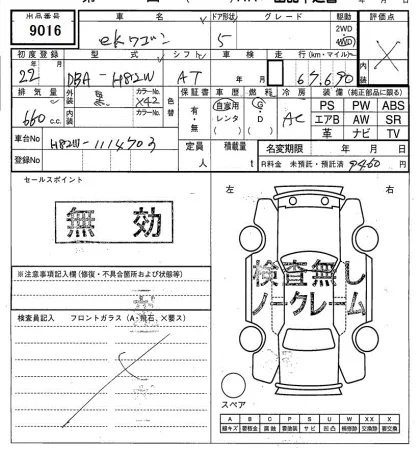 出品番号 車名 ドア形状 グレード 駆動 評価点
9016 ekワゴン 5 2WD 4WD ×
初度登録 型式 シフト 車検 走行(km・マイル) 内装
22 DBA-H82W AT 年 月 67,690
排気量 外装 黒 カラーNo. X42 色替 保証書 車歴 燃料 冷房 装備(純正部品に限る)
660 c.c. 内装 カラーNo. 有・無 自家用 レンタ G・D AC PS PW ABS
エアB AW SR
革 ナビ TV
車台No H82W-1114703
登録No 定員 人 積載量 t 名変期限 年 月 日
R料金 未預託・預託済 9460
セールスポイント 左 右
無効
検査無し
ノークレーム
※注意事項記入欄(修復・不具合箇所および状態等)
検査員記入 フロントガラス(A・飛石、×要ス)
スペア
A B C P S U W XX X
線キズ 要板金 腐蝕 要塗装 サビ 凹凸 補修跡 交換跡 要交換